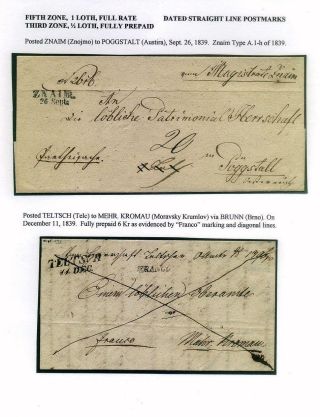 FIFTH ZONE, 1 LOTH, FULL RATE
DATED STRAIGHT LINE POSTMARKS
THIRD ZONE, ½ LOTH, FULLY PREPAID
Posted ZNAIM (Znojmo) to POGGSTALT (Austira), Sept. 26, 1839. Znaim Type A.1-h of 1839.
vom Magistrate Znaim
ZNAIM
26 Sept.
An
Die löbliche Patrimonial Herrschaft
20
zu
Pöggstall
Posted TELTSCH (Telc) to MEHR. KROMAU (Moravsky Krumlov) via BRUNN (Brno). On
December 11, 1839. Fully prepaid 6 Kr as evidenced by "Franco" marking and diagonal lines.
TELTSCH
11. DEC.
FRANCO
Einem löblichen Oberamte
franco
Mähr. Kromau